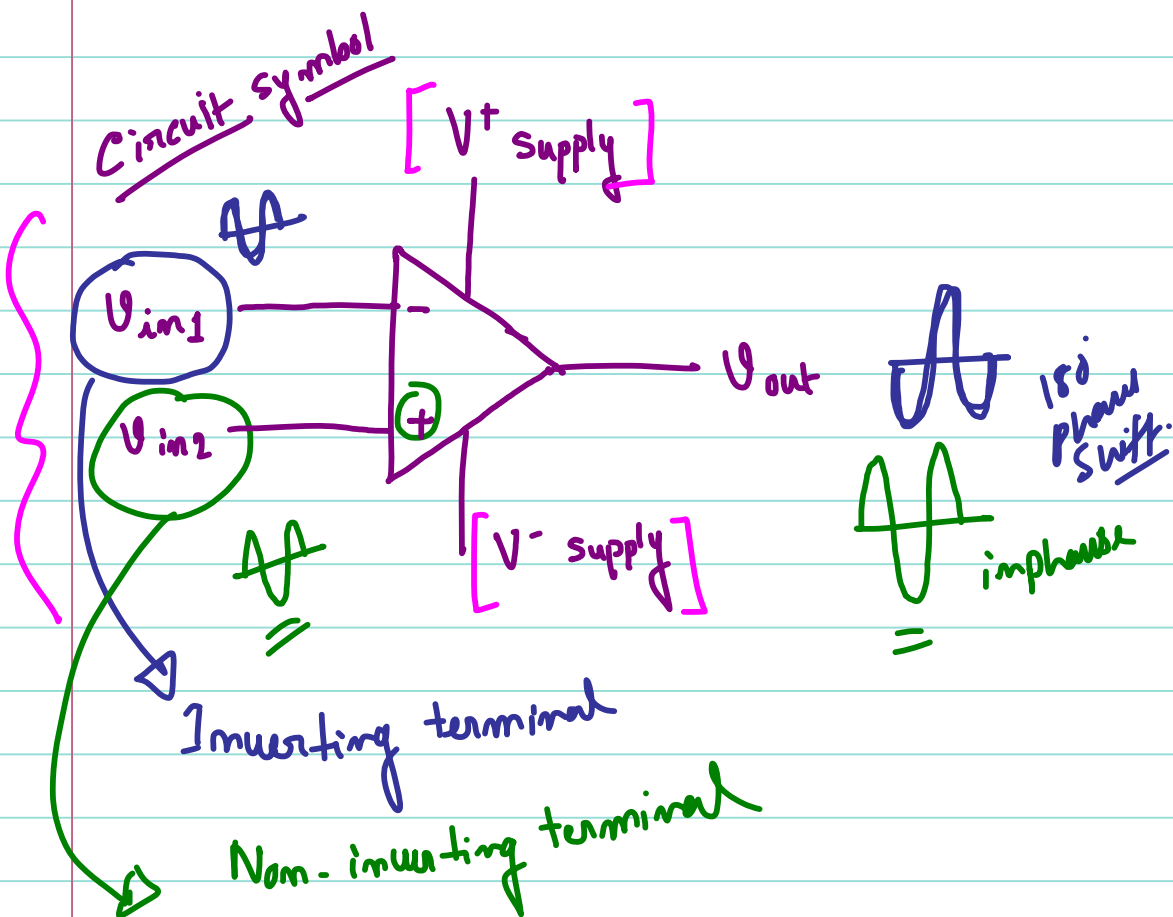 Circuit symbol
[V+ supply]
Vin1
-
Vin2
+
Vout
180
phase
shift
[V- supply]
inphase
Inverting terminal
Non-inverting terminal